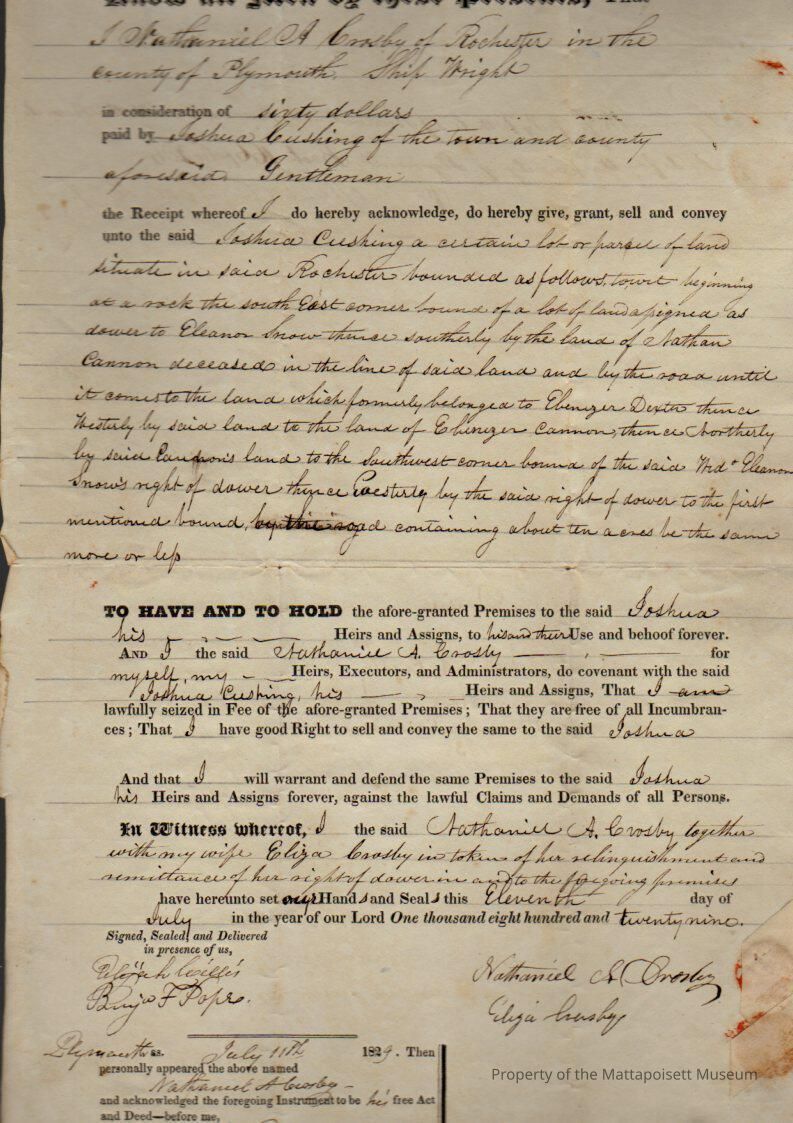 Know all Men by these Presents, That
I Nathaniel A Crosby of Rochester in the
county of Plymouth. Ship Wright
in consideration of sixty dollars
paid by Joshua Cushing of the town and county
aforesaid Gentleman
the Receipt whereof I do hereby acknowledge, do hereby give, grant, sell and convey
unto the said Joshua Cushing a certain lot or parcel of land
situate in said Rochester bounded as follows, towit beginning
at a rock the south East corner bound of a lot of land assigned as
dower to Eleanor Snow thence southerly by the land of Nathan
Cannon deceased in the line of said land and by the road until
it comes to the land which formerly belonged to Ebenezer Dexter thence
Westerly by said land to the land of Ebenezer Cannon, thence Northerly
by said Cannon's land to the Southwest corner bound of the said Wid° Eleanor
Snow's right of dower thence Easterly by the said right of dower to the first
mentioned bound, by the road containing about ten acres be the same
more or less
TO HAVE AND TO HOLD the afore-granted Premises to the said Joshua
his Heirs and Assigns, to his and their Use and behoof forever.
AND I the said Nathaniel A. Crosby for
myself, my Heirs, Executors, and Administrators, do covenant with the said
Joshua Cushing, his Heirs and Assigns, That I am
lawfully seized in Fee of the afore-granted Premises; That they are free of all Incumbran-
ces; That I have good Right to sell and convey the same to the said Joshua
And that I will warrant and defend the same Premises to the said Joshua
his Heirs and Assigns forever, against the lawful Claims and Demands of all Persons.
In Witness whereof, I the said Nathaniel A. Crosby together
with my wife Eliza Crosby in token of her relinquishment and
remittance of her right of dower in and to the foregoing premises
have hereunto set our Hands and Seals this Eleventh day of
July in the year of our Lord One thousand eight hundred and twenty nine.
Signed, Sealed, and Delivered
in presence of us,
Elijah Willis
Benja F Pope.
Nathaniel A Crosby
Eliza Crosby
Plymouth ss. July 11th 1829. Then
personally appeared the above named
Nathaniel A Crosby
and acknowledged the foregoing Instrument to be his free Act
and Deed—before me,
Property of the Mattapoisett Museum